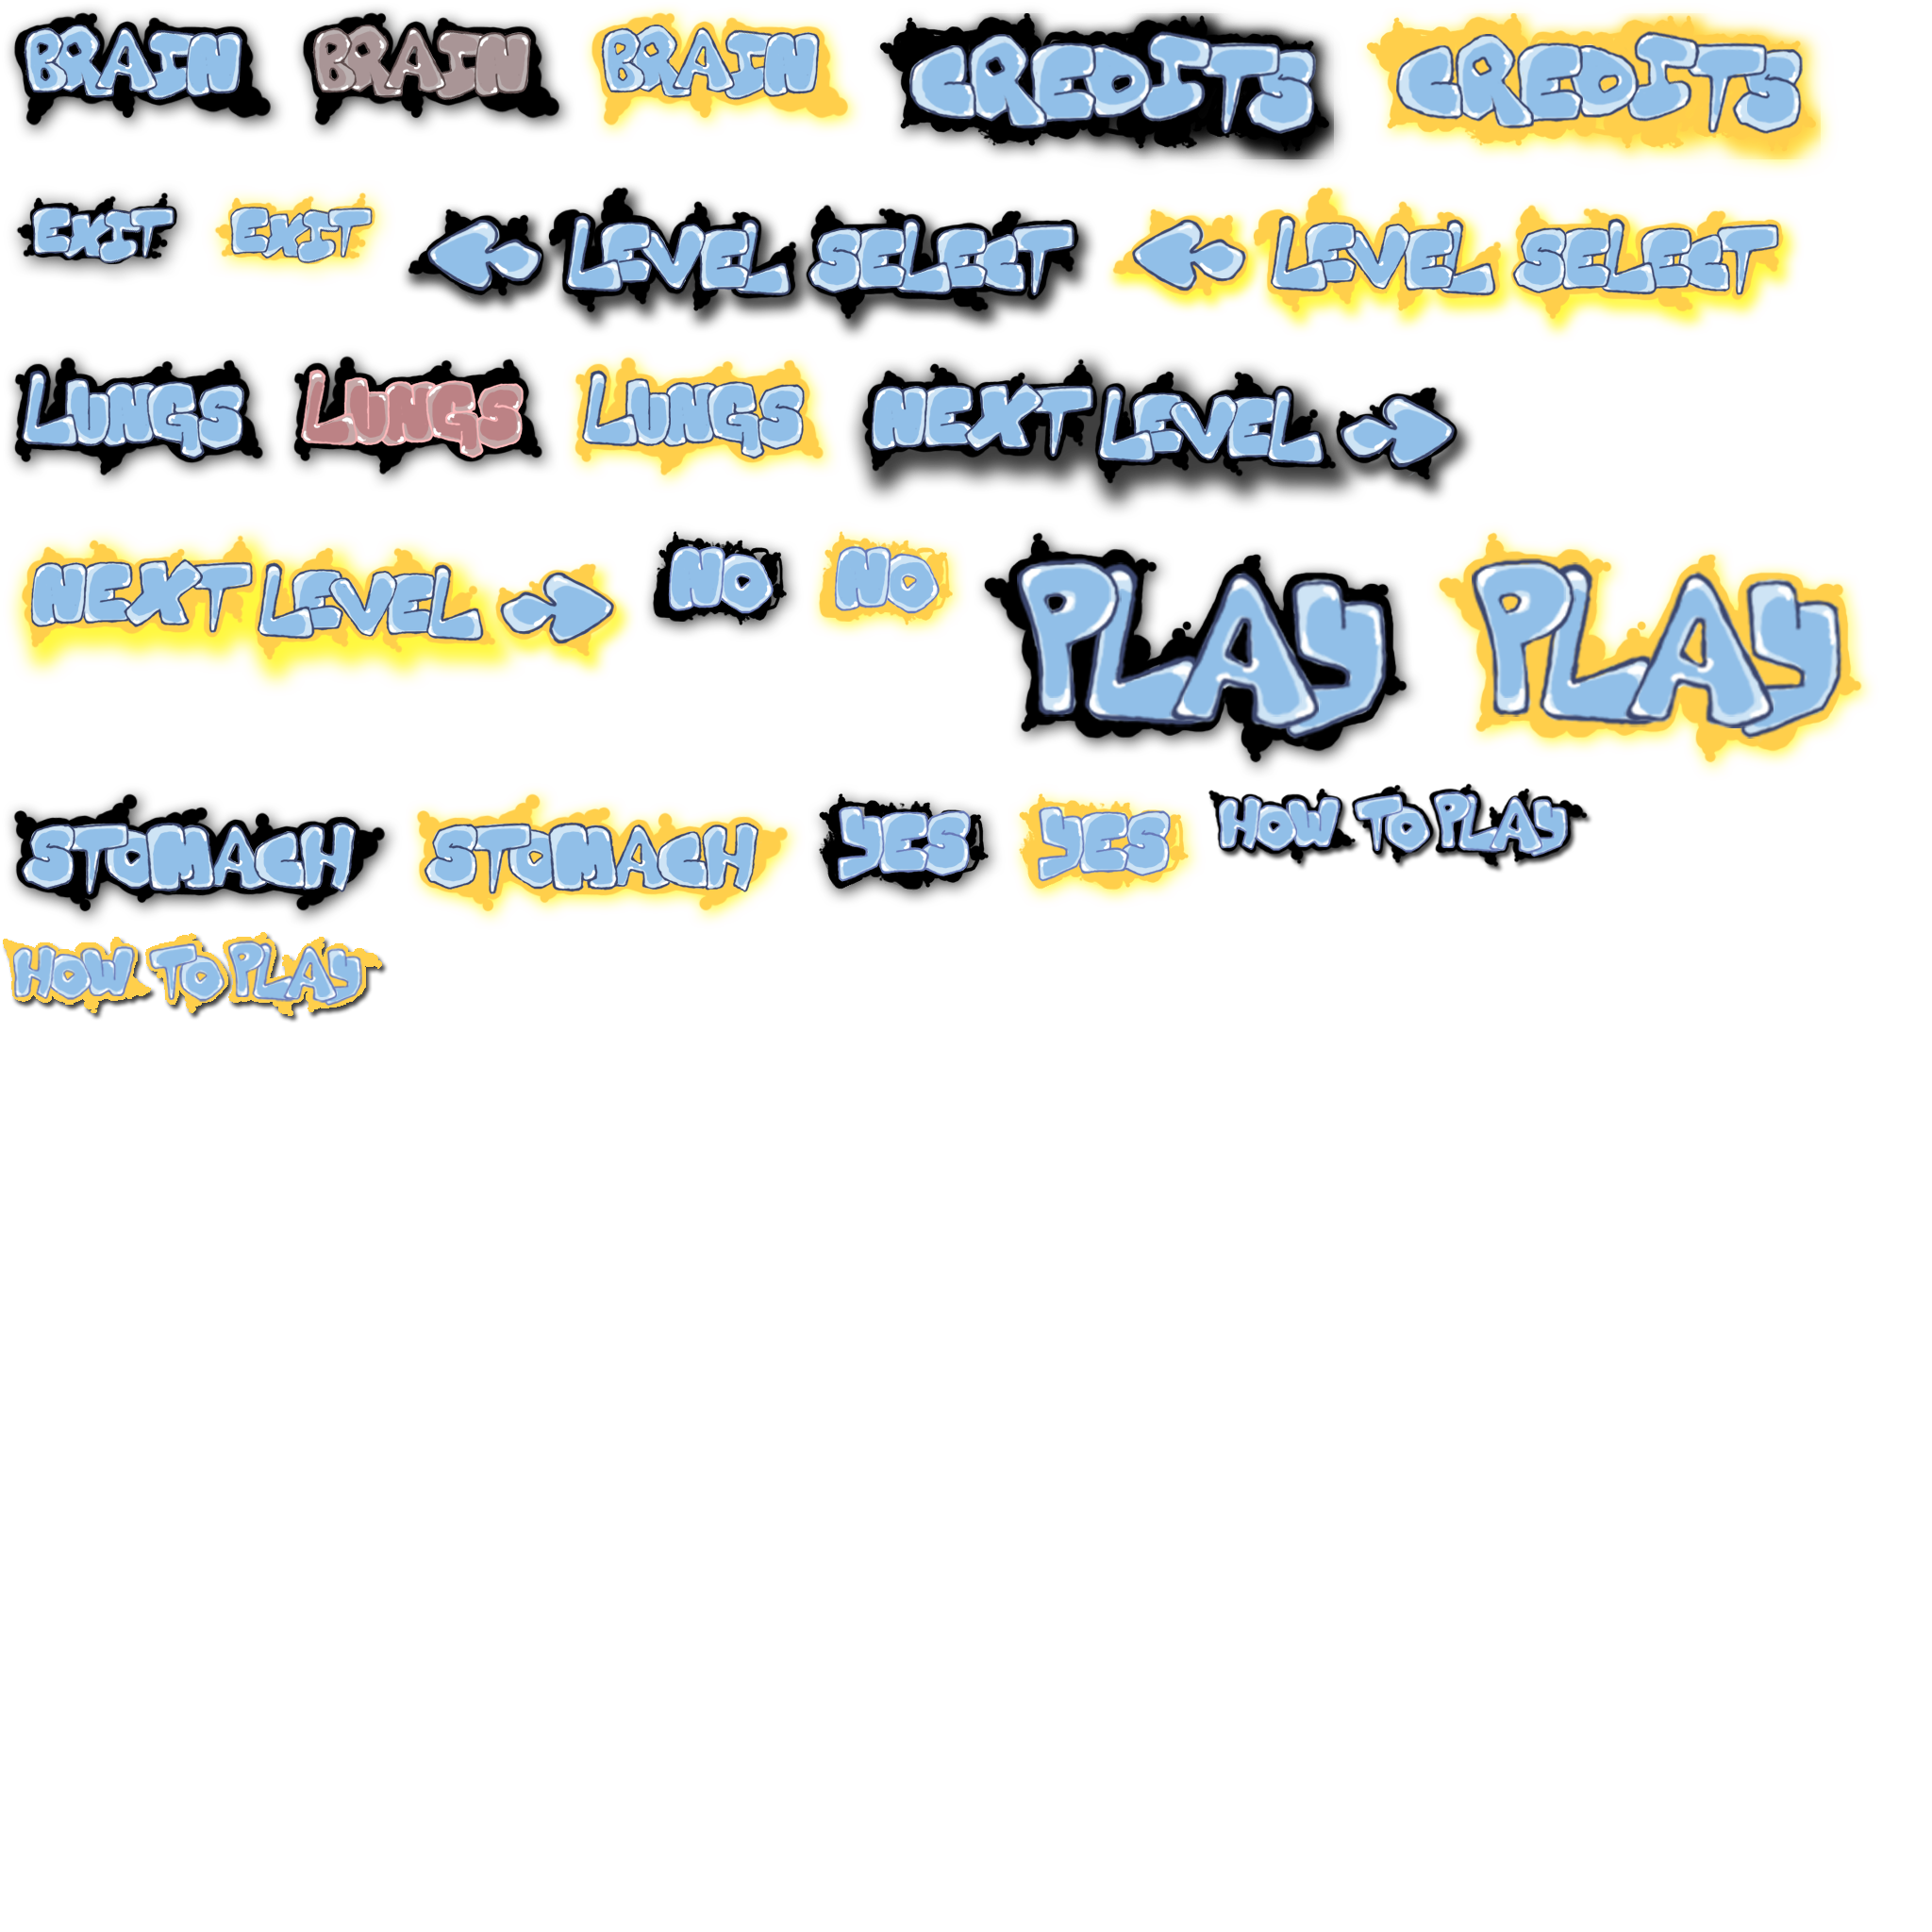 BRAIN BRAIN BRAIN CREDITS CREDITS
EXIT EXIT LEVEL SELECT LEVEL SELECT
LUNGS LUNGS LUNGS NEXT LEVEL
NEXT LEVEL NO NO PLAY PLAY
STOMACH STOMACH YES YES HOW TO PLAY
HOW TO PLAY